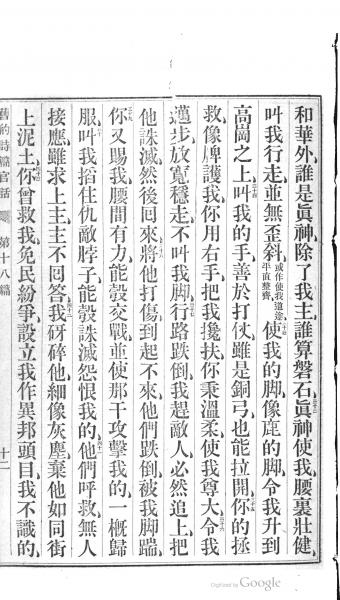 和華外誰是眞神除了我主誰算磐石眞神使我腰裏壯健
叫我行走並無歪斜或作使我道途平直整齊使我的脚像鹿的脚令我升到
高崗之上叫我的手善於打仗雖是銅弓也能拉開你的拯
救像牌護我你用右手把我攙扶你秉溫柔使我尊大令我
邁步放寬穩走不叫我脚行路跌倒我趕敵人必然追上把
他誅滅然後回來將他打傷到起不來他們跌倒被我脚踹
你又賜我腰間有力能彀交戰並使那干攻擊我的一槪歸
服叫我搯住仇敵脖子能彀誅滅怨恨我的他們呼救無人
接應雖求上主主不回答我砑碎他細像灰塵棄他如同街
上泥土你曾救我免民紛爭設立我作異邦頭目我不識的
舊約詩篇官話 第十八篇 十二
Digitized by Google